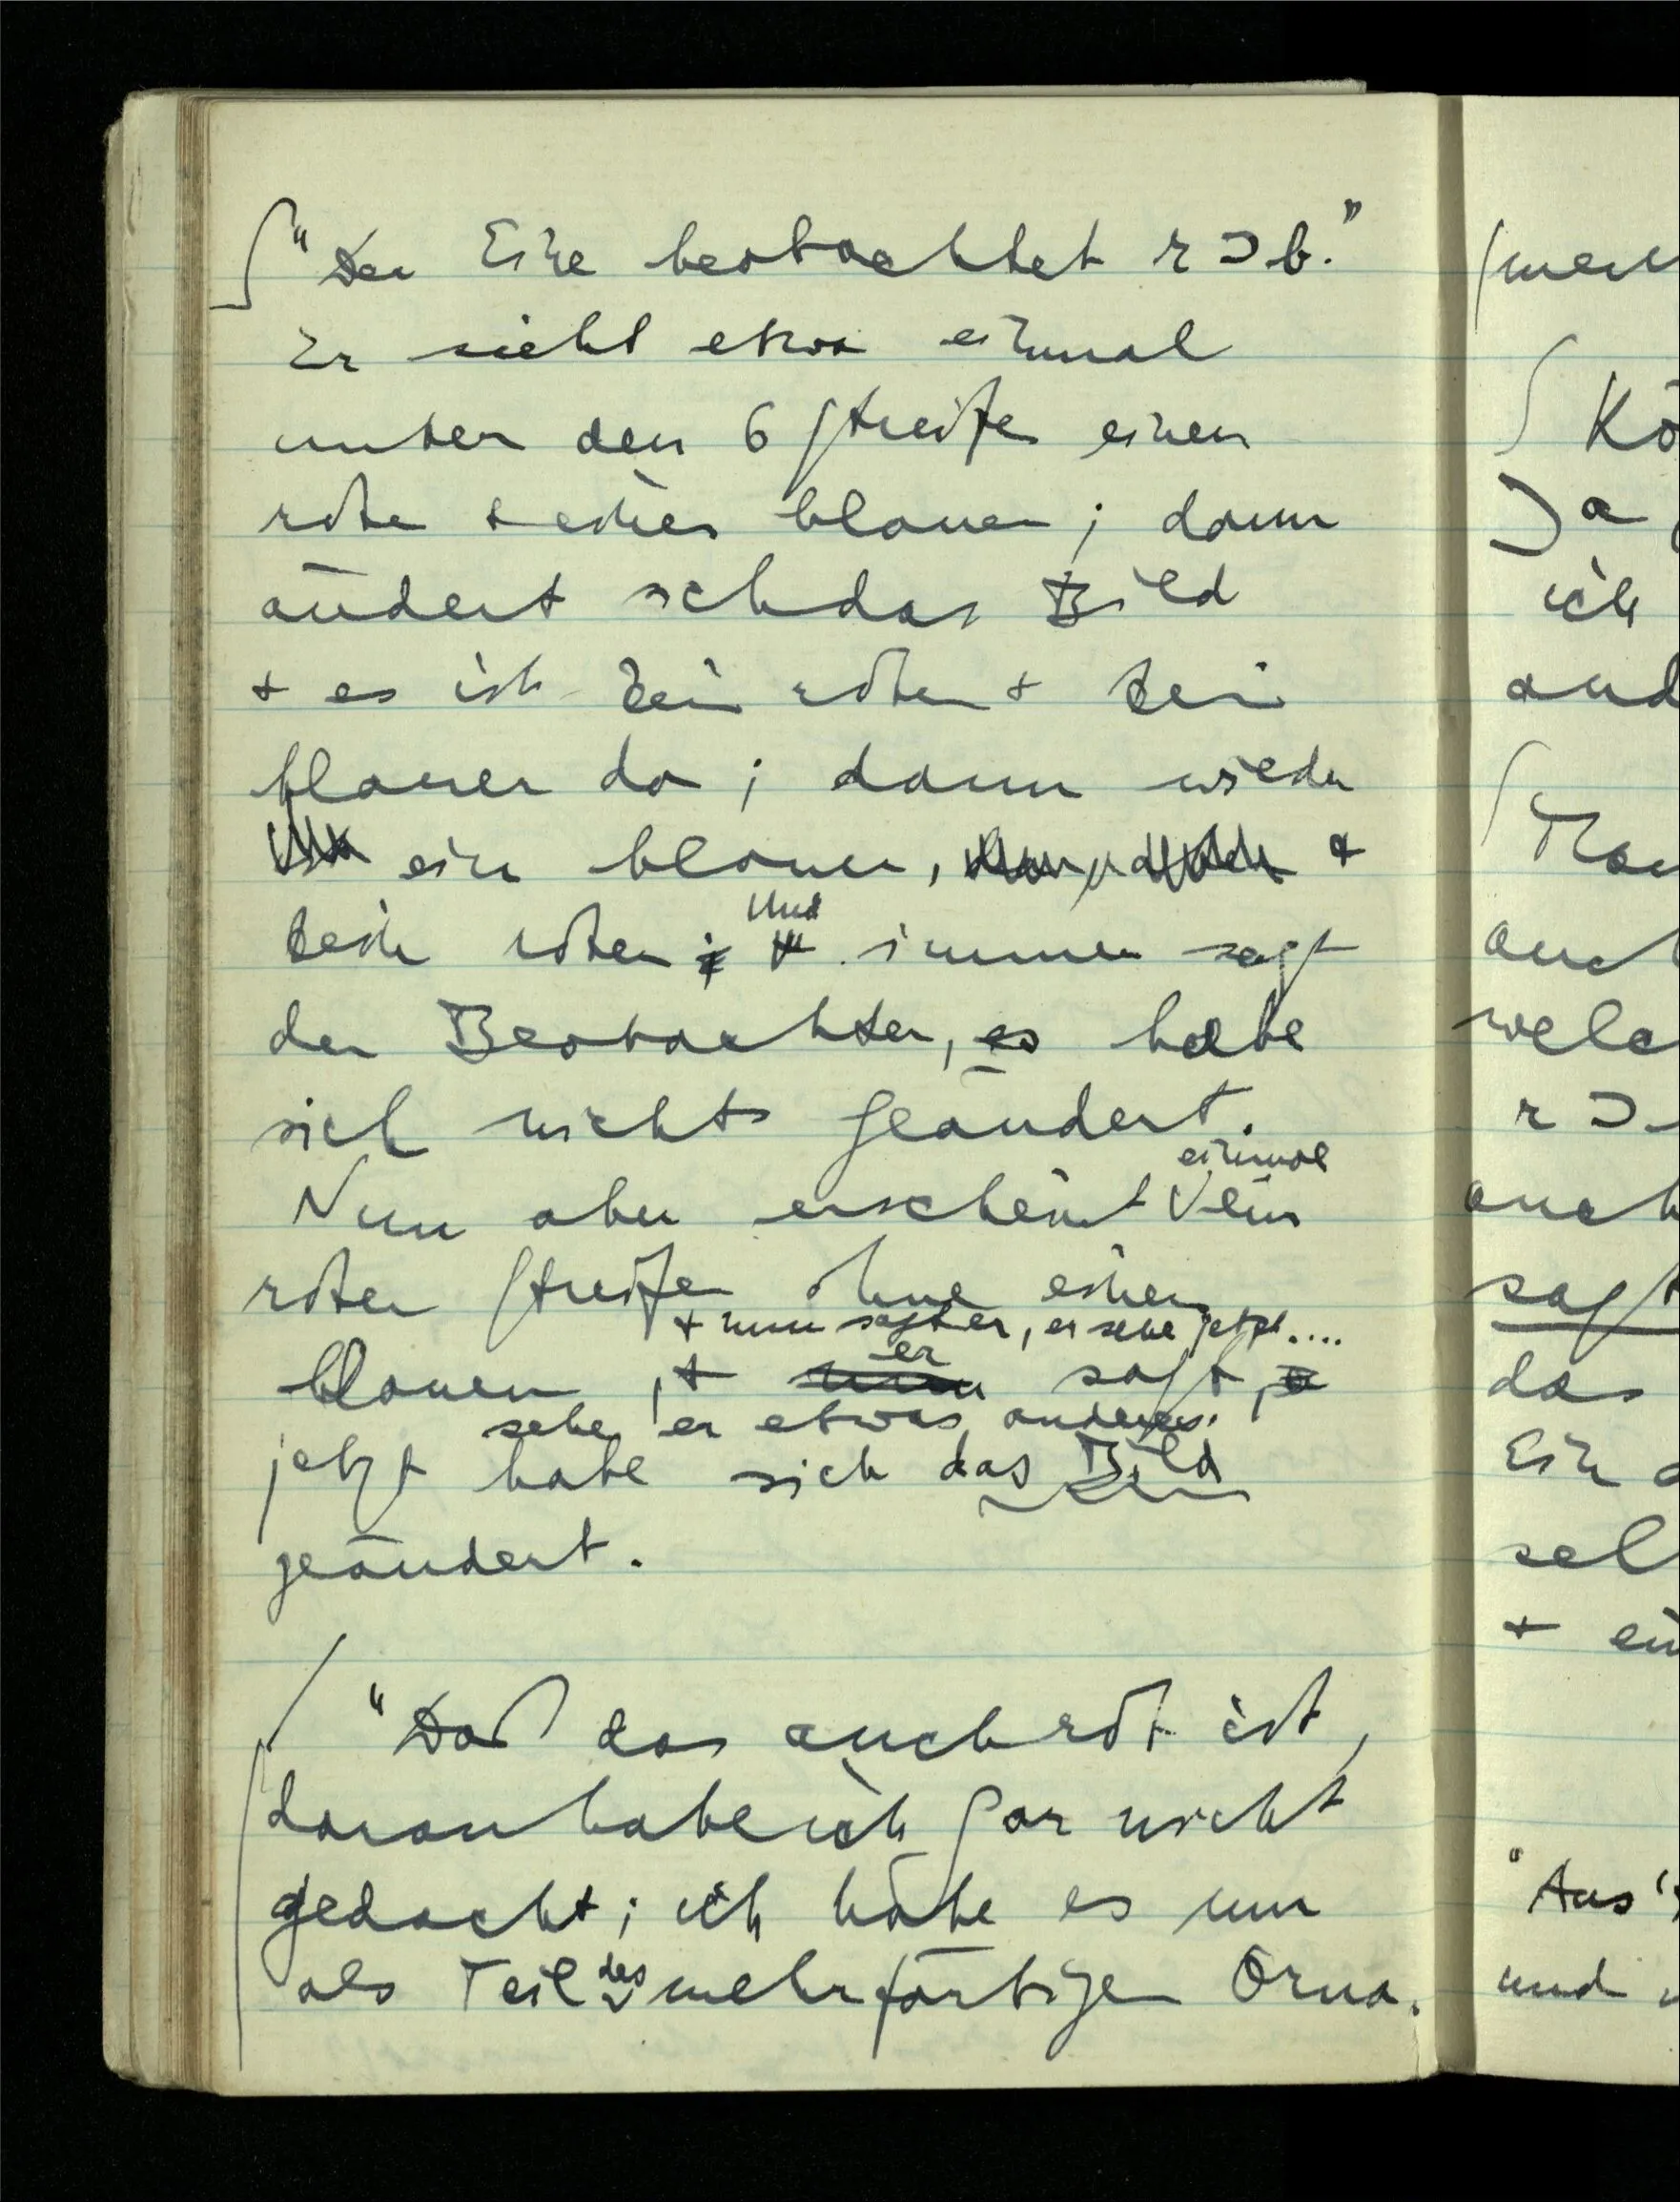 "Der Eine beobachtet r ⊃ b."
Er sieht etwa einmal
unter den 6 Streifen einen
roten + einen blauen ; dann
ändert sich das Bild
+ es ist kein roter + kein
blauer da ; dann wieder
ein blauer, +
kein roter; Und immer sagt
der Beobachter, es habe
sich nichts geändert.
einmal
Nun aber erscheint ein
roter Streifen ohne einen
+ nun sagt er, er sehe jetzt....
er
blauen, + nun sagt,
sehe er etwas anderes.
jetzt habe sich das Bild
geändert.
"Daß das auch rot ist,
daran habe ich gar nicht
gedacht; ich habe es nur
als Teil des mehrfärbigen Orna-
Kö
Ja
ich
and
auch
welc
r ⊃
auch
sagt
das
Ein
sel
+ ein
"Aus
und